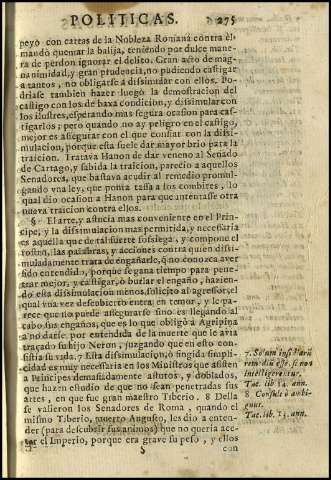 POLITICAS. 275
peyo con cartas de la Nobleza Romana contra èl
mandò quemar la balija, teniendo por dulce mane-
ra de perdon ignorar el delito. Gran acto de mag-
nanimidad, y gran prudencia, no pudiendo castigar
a tantos, no obligarse à dissimular con ellos. Po-
driase tambien hazer luego la demostracion del
castigo con los de baxa condicion, y dissimular con
los ilustres, esperando mas segura ocasion para cas-
tigarlos; pero quando no ay peligro en el castigo,
mejor es assegurar con el que confiar en la dissi-
mulacion, porque esta suele dar mayor brio para la
traicion. Tratava Hanon de dar veneno al Senado
de Cartago, y sabida la traicion, pareciò a aquellos
Senadores, que bastava acudir al remedio promul-
gando vna ley, que ponia tassa a los combites, lo
qual dio ocasion a Hanon para que intentasse otra
nueva traicion contra ellos.
§ El arte, y astucia mas conveniente en el Prin-
cipe, y la dissimulacion mas permitida, y necessaria
es aquella que de tal suerte sossiega, y compone el
rostro, las palabras, y acciones contra quien dissi-
muladamente trata de engañarle, que no conozca aver
sido entendido, porque se gana tiempo para pene-
trar mejor, y castigar, ò burlar el engaño, hazien-
do esta dissimulacion menos solicito al agressor, el
qual vna vez descubierto entra en temor, y le pa-
rece que no puede assegurarse sino es llevando al
cabo sus engañas, que es lo que obligò a Agripina
a no darse por entendida de la muerte que le avia
traçado su hijo Neron, juzgando que en esto con-
sistia su vida. 7 Esta dissimulacion, ò fingida simpli-
cidad es muy necessaria en los Ministros que assisten
a Principes demasiadamente astutos, y doblados,
que hazen estudio de que no sean penetradas sus
artes, en que fue gran maestro Tiberio. 8 Della
se valieron los Senadores de Roma, quando el
mismo Tiberio, muerto Augusto, les diò a enten-
der (para descubrir sus animos) que no queria ace-
tar el Imperio, porque era grave su peso, y ellos
S con
7. Solum insidiarũ
remediũ esse, si non
intelligerentur.
Tac. lib 14. ann.
8 Consulè ò ambi-
guur.
Tac. lib. 13. ann.